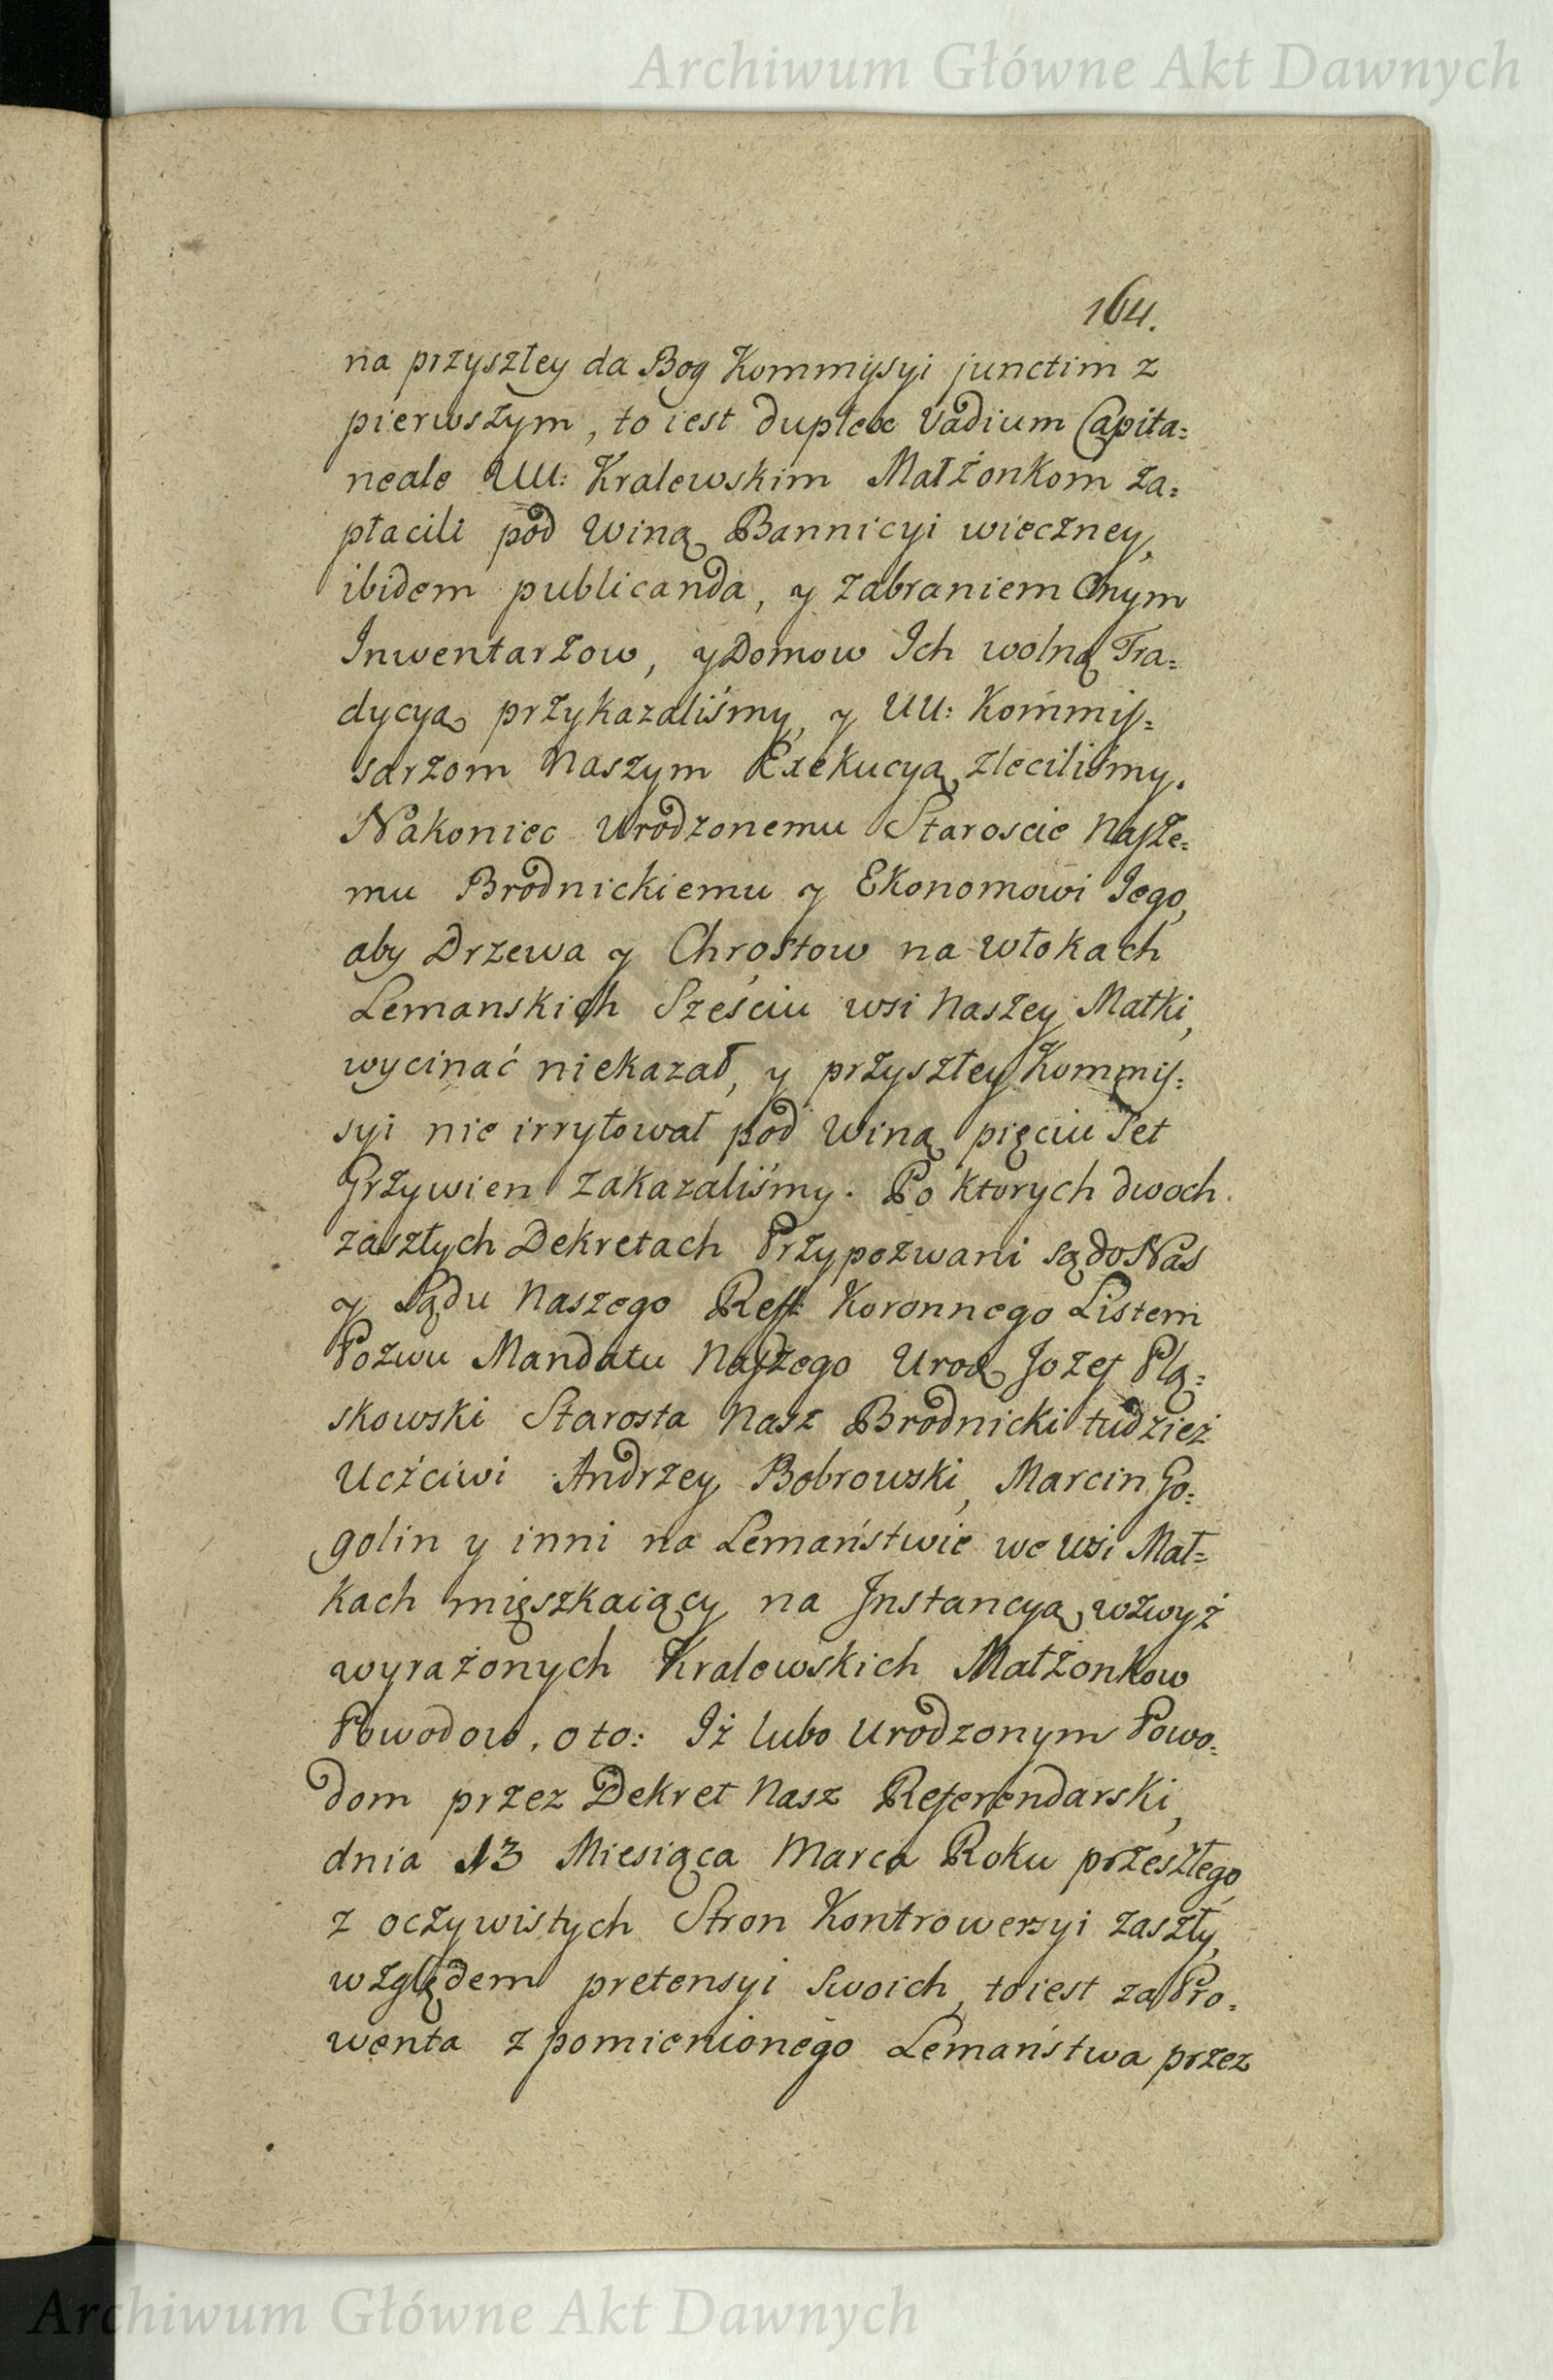 Archiwum Główne Akt Dawnych
164.
na przyszłey da Bog Kommissyi junctim z
pierwszym, to iest duplex Vadium Capita=
neale UU: Kralewskim Małżonkom za=
płacili pod Winą Bannicyi wieczney,
ibidem publicanda, y zabraniem Onym
Inwentarzow, y Domow Ich wolną Tra=
dycyą przykazaliśmy, y UU: Kommis=
sarzom Naszym Exekucyą zleciliśmy.
Nakoniec Urodzonemu Staroscie Nasze=
mu Brodnickiemu y Ekonomowi Jego,
aby Drzewa y Chrostow na włokach
Lemanskich Sześciu wsi Naszey Małki,
wycinać niekazał, y przyszłey Kommis=
syi nie irrytował pod Winą pięciu Set
Grzywien zakazaliśmy. Po ktorych dwoch
zaszłych Dekretach Przypozwani są do Nas
y Sądu Naszego Reff: Koronnego Listem
Pozwu Mandatu Naszego Urod Jozef Plą=
skowski Starosta Nasz Brodnicki tudzież
Uczciwi Andrzey Bobrowski, Marcin Go=
golin y inni na Lemaństwie we wsi Mał=
kach mięszkaiący na Instancyą wzwyż
wyrażonych Kralewskich Małżonkow
Powodow, o to: Iż lubo Urodzonym Powo=
dom przez Dekret Nasz Referendarski,
dnia 13 Miesiąca Marca Roku przeszłego
z oczywistych Stron Kontrowersyi zaszły,
względem pretensyi Swoich, to iest za Pro=
wenta z pomienionego Lemaństwa przez
Archiwum Główne Akt Dawnych